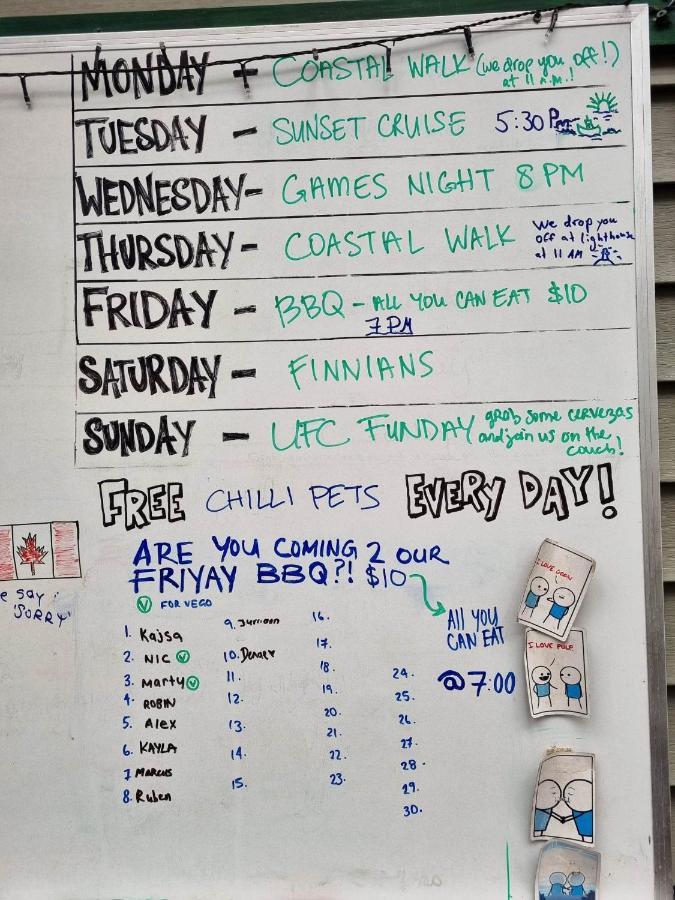 MONDAY - COASTAL WALK (we drop you off!)
at 11 A.M.!
TUESDAY - SUNSET CRUISE 5:30 Pm
WEDNESDAY- GAMES NIGHT 8 PM
THURSDAY- COASTAL WALK We drop you
off at lighthouse
at 11 AM
FRIDAY - BBQ - ALL YOU CAN EAT $10
7 PM
SATURDAY - FINNIANS
SUNDAY - UFC FUNDAY grab some cervezas
and join us on the
couch!
FREE CHILLI PETS EVERY DAY!
ARE YOU COMING 2 OUR
FRIYAY BBQ?! $10
V FOR VEGO
ALL YOU
CAN EAT
@ 7:00
e SAY:
"SORRY"
1. Kajsa
2. NIC V
3. Marty V
4. ROBIN
5. Alex
6. KAYLA
7 MARCUS
8. Ruben
9.
10.
11.
12.
13.
14.
15.
16.
17.
18.
19.
20.
21.
22.
23.
24.
25.
26.
27.
28.
29.
30.
I LOVE
I LOVE